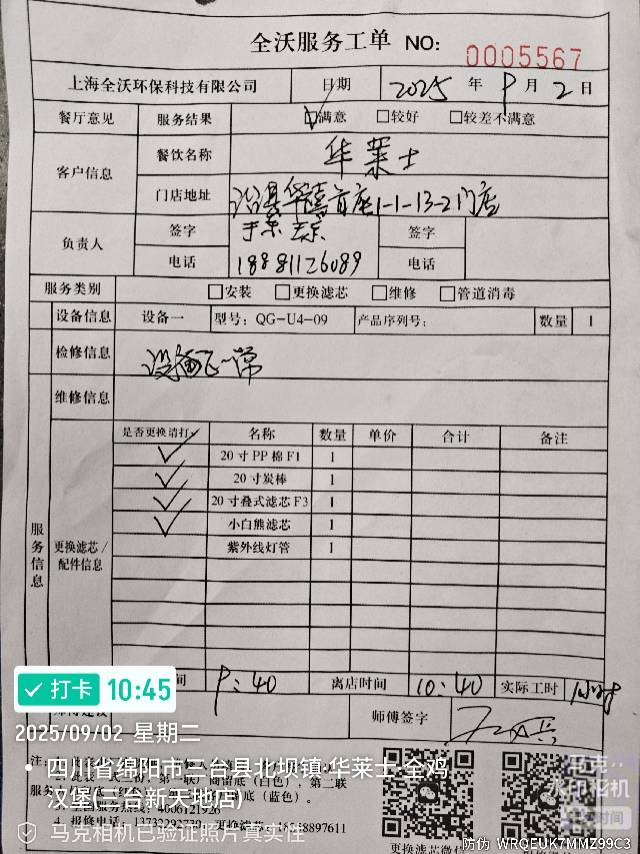 全沃服务工单 NO: 0005567
上海全沃环保科技有限公司 日期 2025 年 9 月 2 日
餐厅意见 服务结果 ☑满意 □较好 □较差不满意
客户信息 餐饮名称 华莱士
门店地址 首座1-1-13-2门店
负责人 签字 签字
电话 18881126089 电话
服务类别 □安装 □更换滤芯 □维修 □管道消毒
设备信息 设备一 型号: QG-U4-09 产品序列号: 数量 1
检修信息 设备正常
维修信息
服务信息
更换滤芯/配件信息
是否更换请打✓ 名称 数量 单价 合计 备注
✓ 20寸PP棉F1 1
✓ 20寸炭棒 1
✓ 20寸叠式滤芯F3 1
✓ 小白熊滤芯 1
紫外线灯管 1
间 9:40 离店时间 10:40 实际工时 1小时
师傅签字
打卡 10:45
2025/09/02 星期二
四川省绵阳市三台县北坝镇·华莱士·全鸡汉堡(三台新天地店)
马克相机已验证照片真实性
底(白色), 第二联
底(蓝色)。
更换滤芯微信
马克
水印相机
防伪 WRQEUK7MMZ99C3